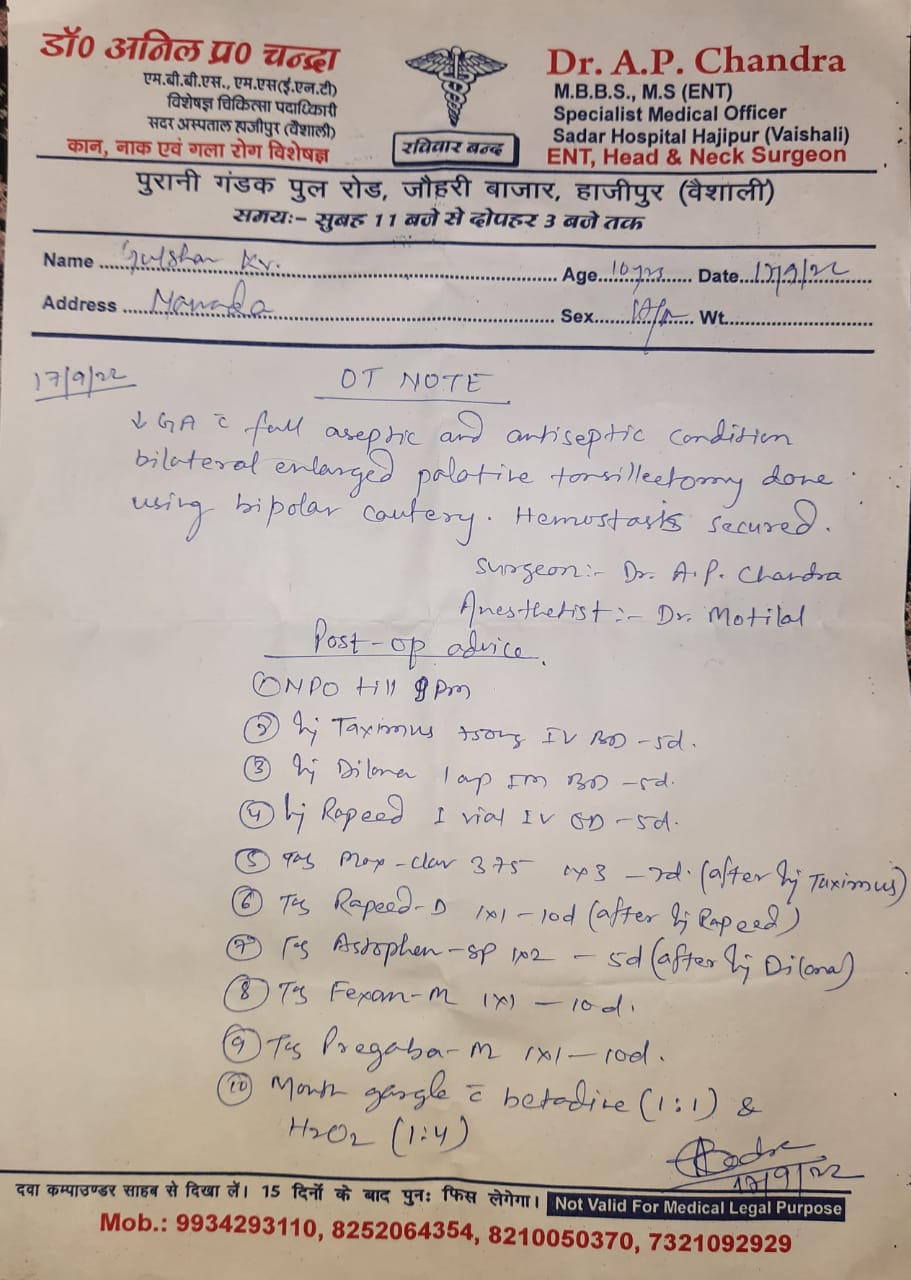 डॉ0 अनिल प्र0 चन्द्रा
एम.बी.बी.एस., एम.एस(ई.एन.टी)
विशेषज्ञ चिकित्सा पदाधिकारी
सदर अस्पताल हाजीपुर (वैशाली)
कान, नाक एवं गला रोग विशेषज्ञ
रविवार बन्द
Dr. A.P. Chandra
M.B.B.S., M.S (ENT)
Specialist Medical Officer
Sadar Hospital Hajipur (Vaishali)
ENT, Head & Neck Surgeon
पुरानी गंडक पुल रोड, जौहरी बाजार, हाजीपुर (वैशाली)
समयः- सुबह 11 बजे से दोपहर 3 बजे तक
Name Gulshan Kr. Age 10 yrs Date 17/9/22
Address Sex Wt.
17/9/22
OT NOTE
↓ GA c̄ full aseptic and antiseptic condition
bilateral enlarged palatine tonsillectomy done
using bipolar cautery. Hemostasis secured.
Surgeon:- Dr. A.P. Chandra
Anesthetist:- Dr. Motilal
Post-op advice.
① NPO till pm
② Inj Taximus IV BD - 5d.
③ Inj Dilona 1 ap IM BD - 5d.
④ Inj Rapeed I vial IV OD - 5d.
⑤ Tab Mox-clav 375 1x3 - 7d. (after Inj Taximus)
⑥ Tab Rapeed-D 1x1 - 10d (after Inj Rapeed)
⑦ Tab -SP 1x2 - 5d (after Inj Dilona)
⑧ Tab Fexan-M 1x1 - 10d.
⑨ Tab Pregaba-M 1x1 - 10d.
⑩ Mouth gargle c̄ betadine (1:1) &
H2O2 (1:4)
17/9/22
दवा कम्पाउण्डर साहब से दिखा लें। 15 दिनों के बाद पुनः फिस लेगेगा। Not Valid For Medical Legal Purpose
Mob.: 9934293110, 8252064354, 8210050370, 7321092929